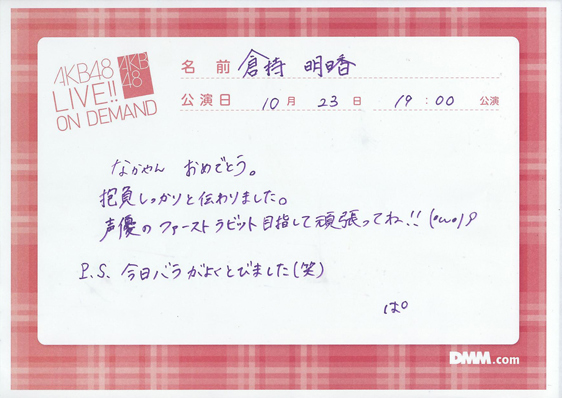 AKB48
LIVE!!
ON DEMAND
AKB
48
名 前 倉持 明日香
公演日 10 月 23 日 19:00 公演
なかやん おめでとう。
抱負しっかりと伝わりました。
声優のファーストラビット目指して頑張ってね!! (•ω•)و
P.S. 今日バラがよくとびました(笑)
ぱ°
DMM.com